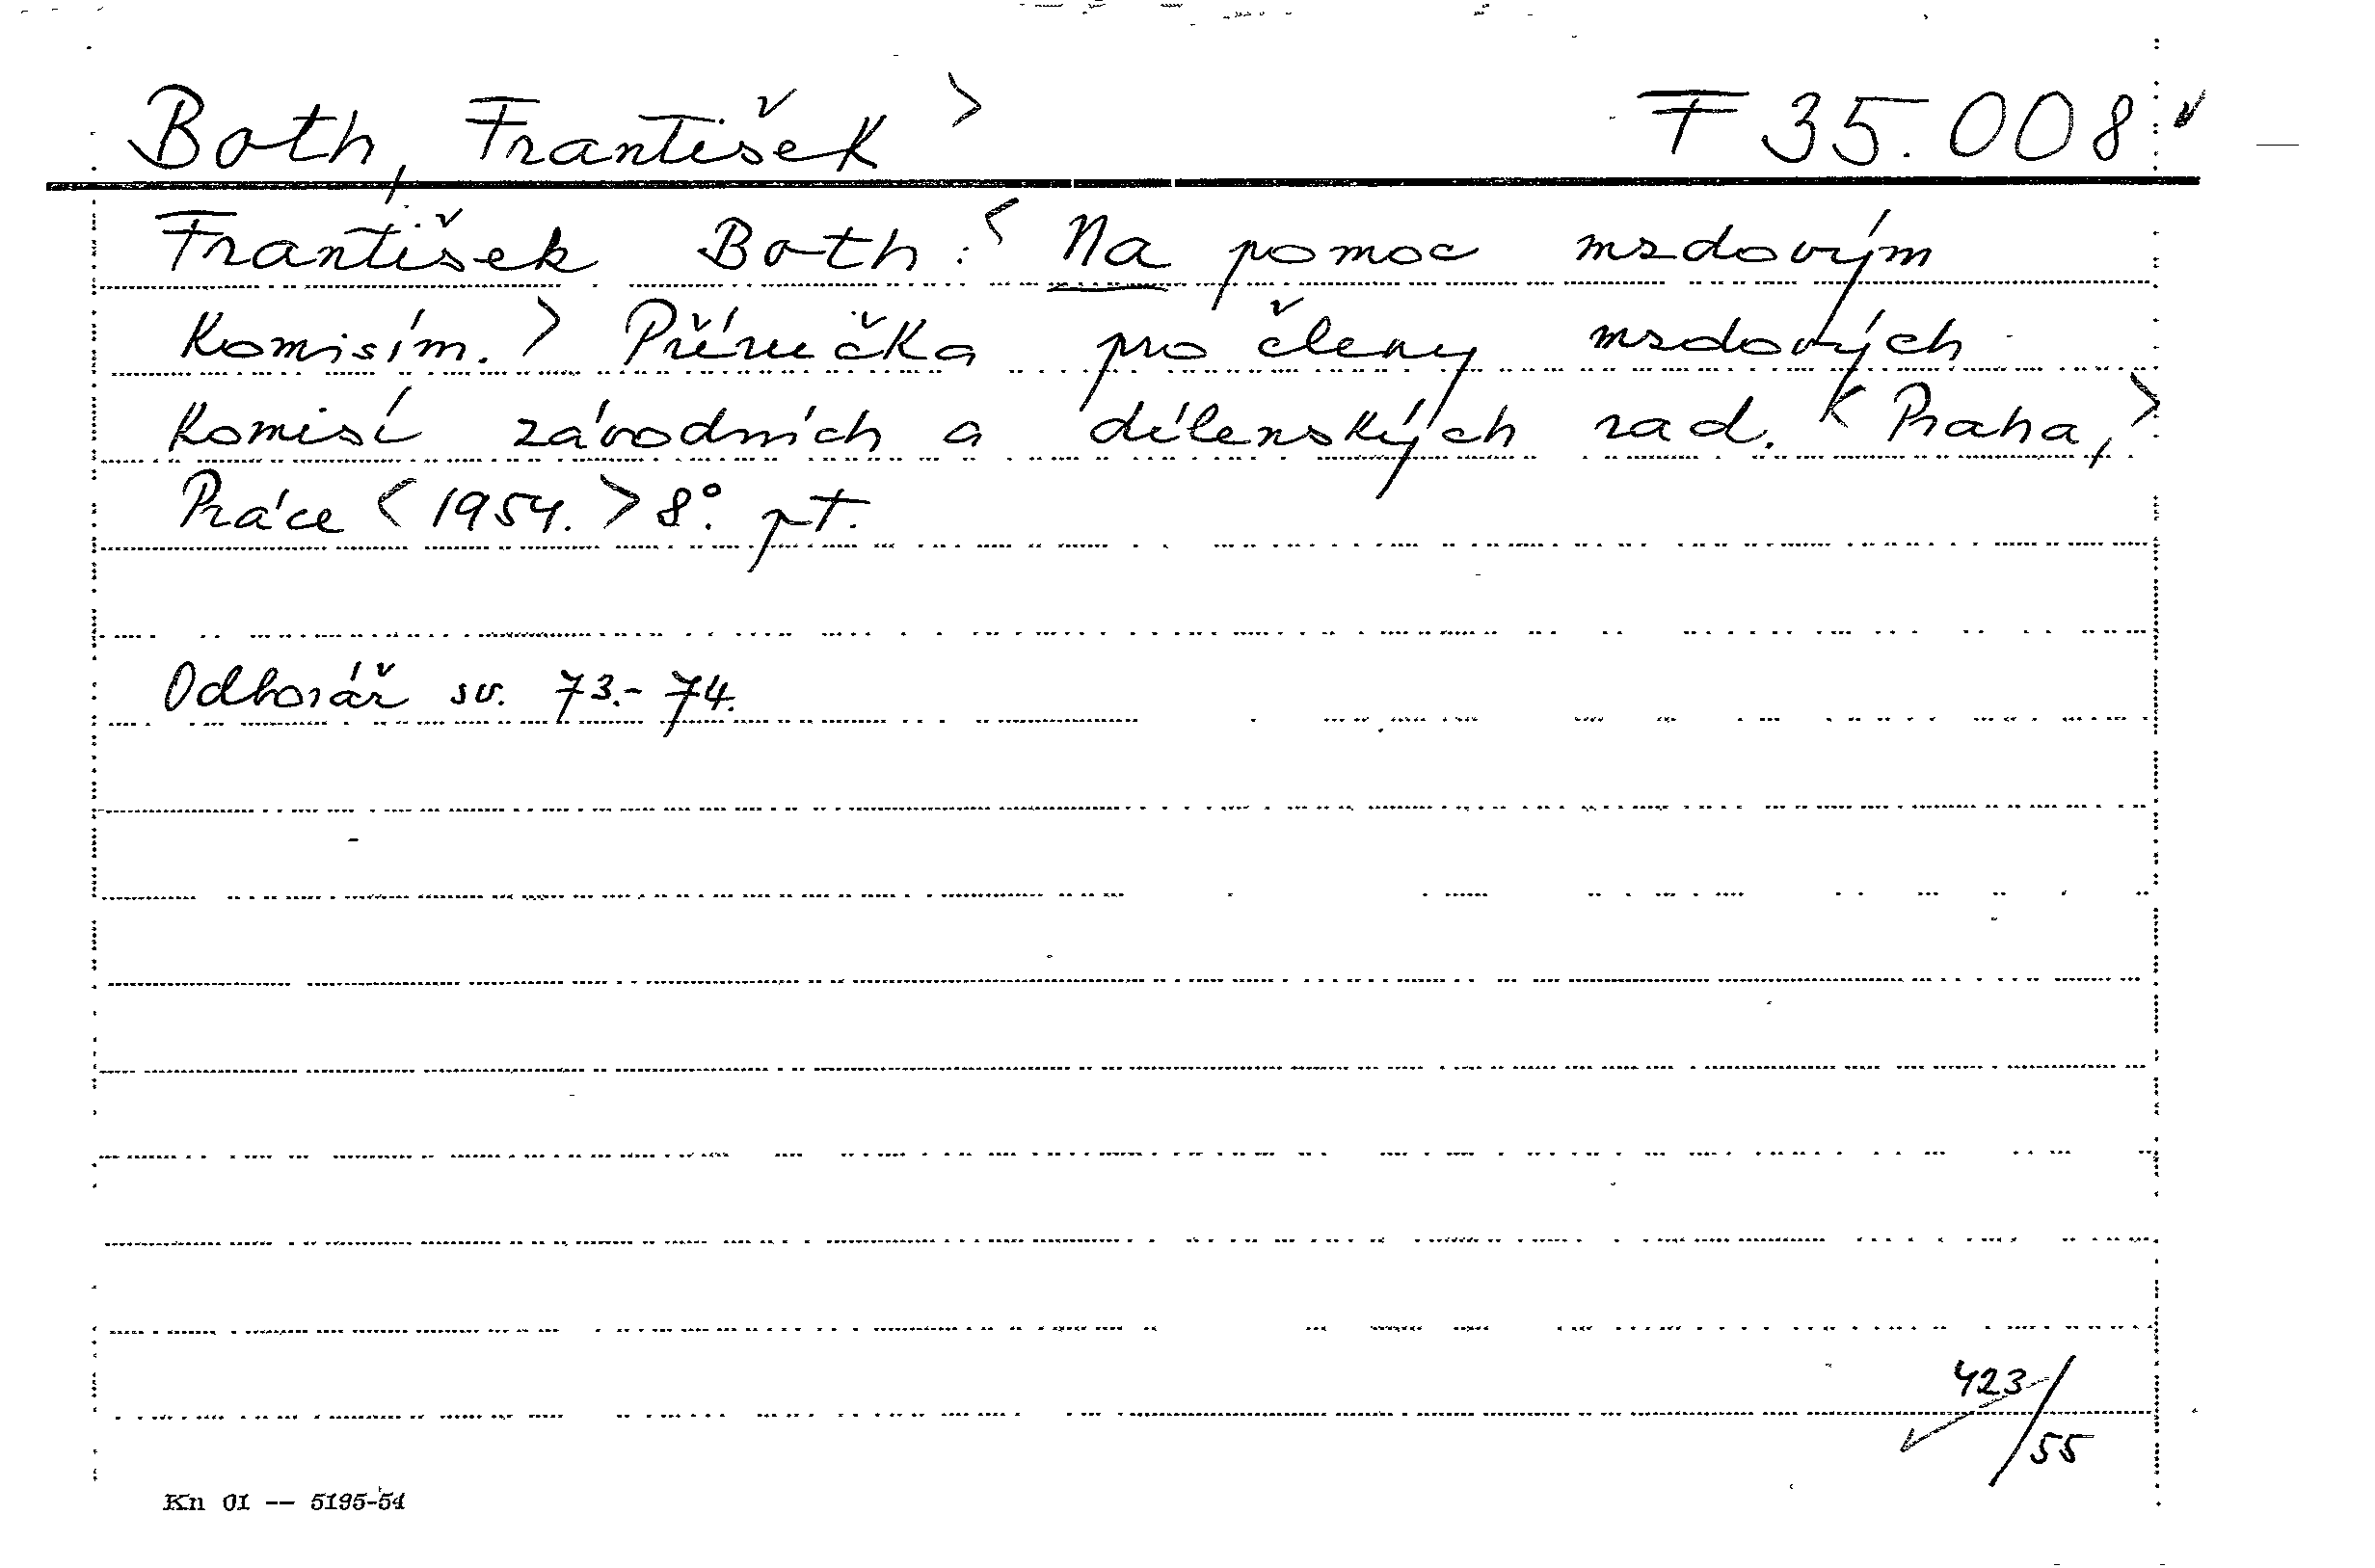 Both, František > F 35.008
František Both: < Na pomoc mzdovým
komisím. > Příručka pro členy mzdových
komisí závodních a dílenských rad. < Praha, >
Práce < 1954. > 8°. pt.
Odborář sv. 73.-74.
423/55
Kn 01 -- 5195-54